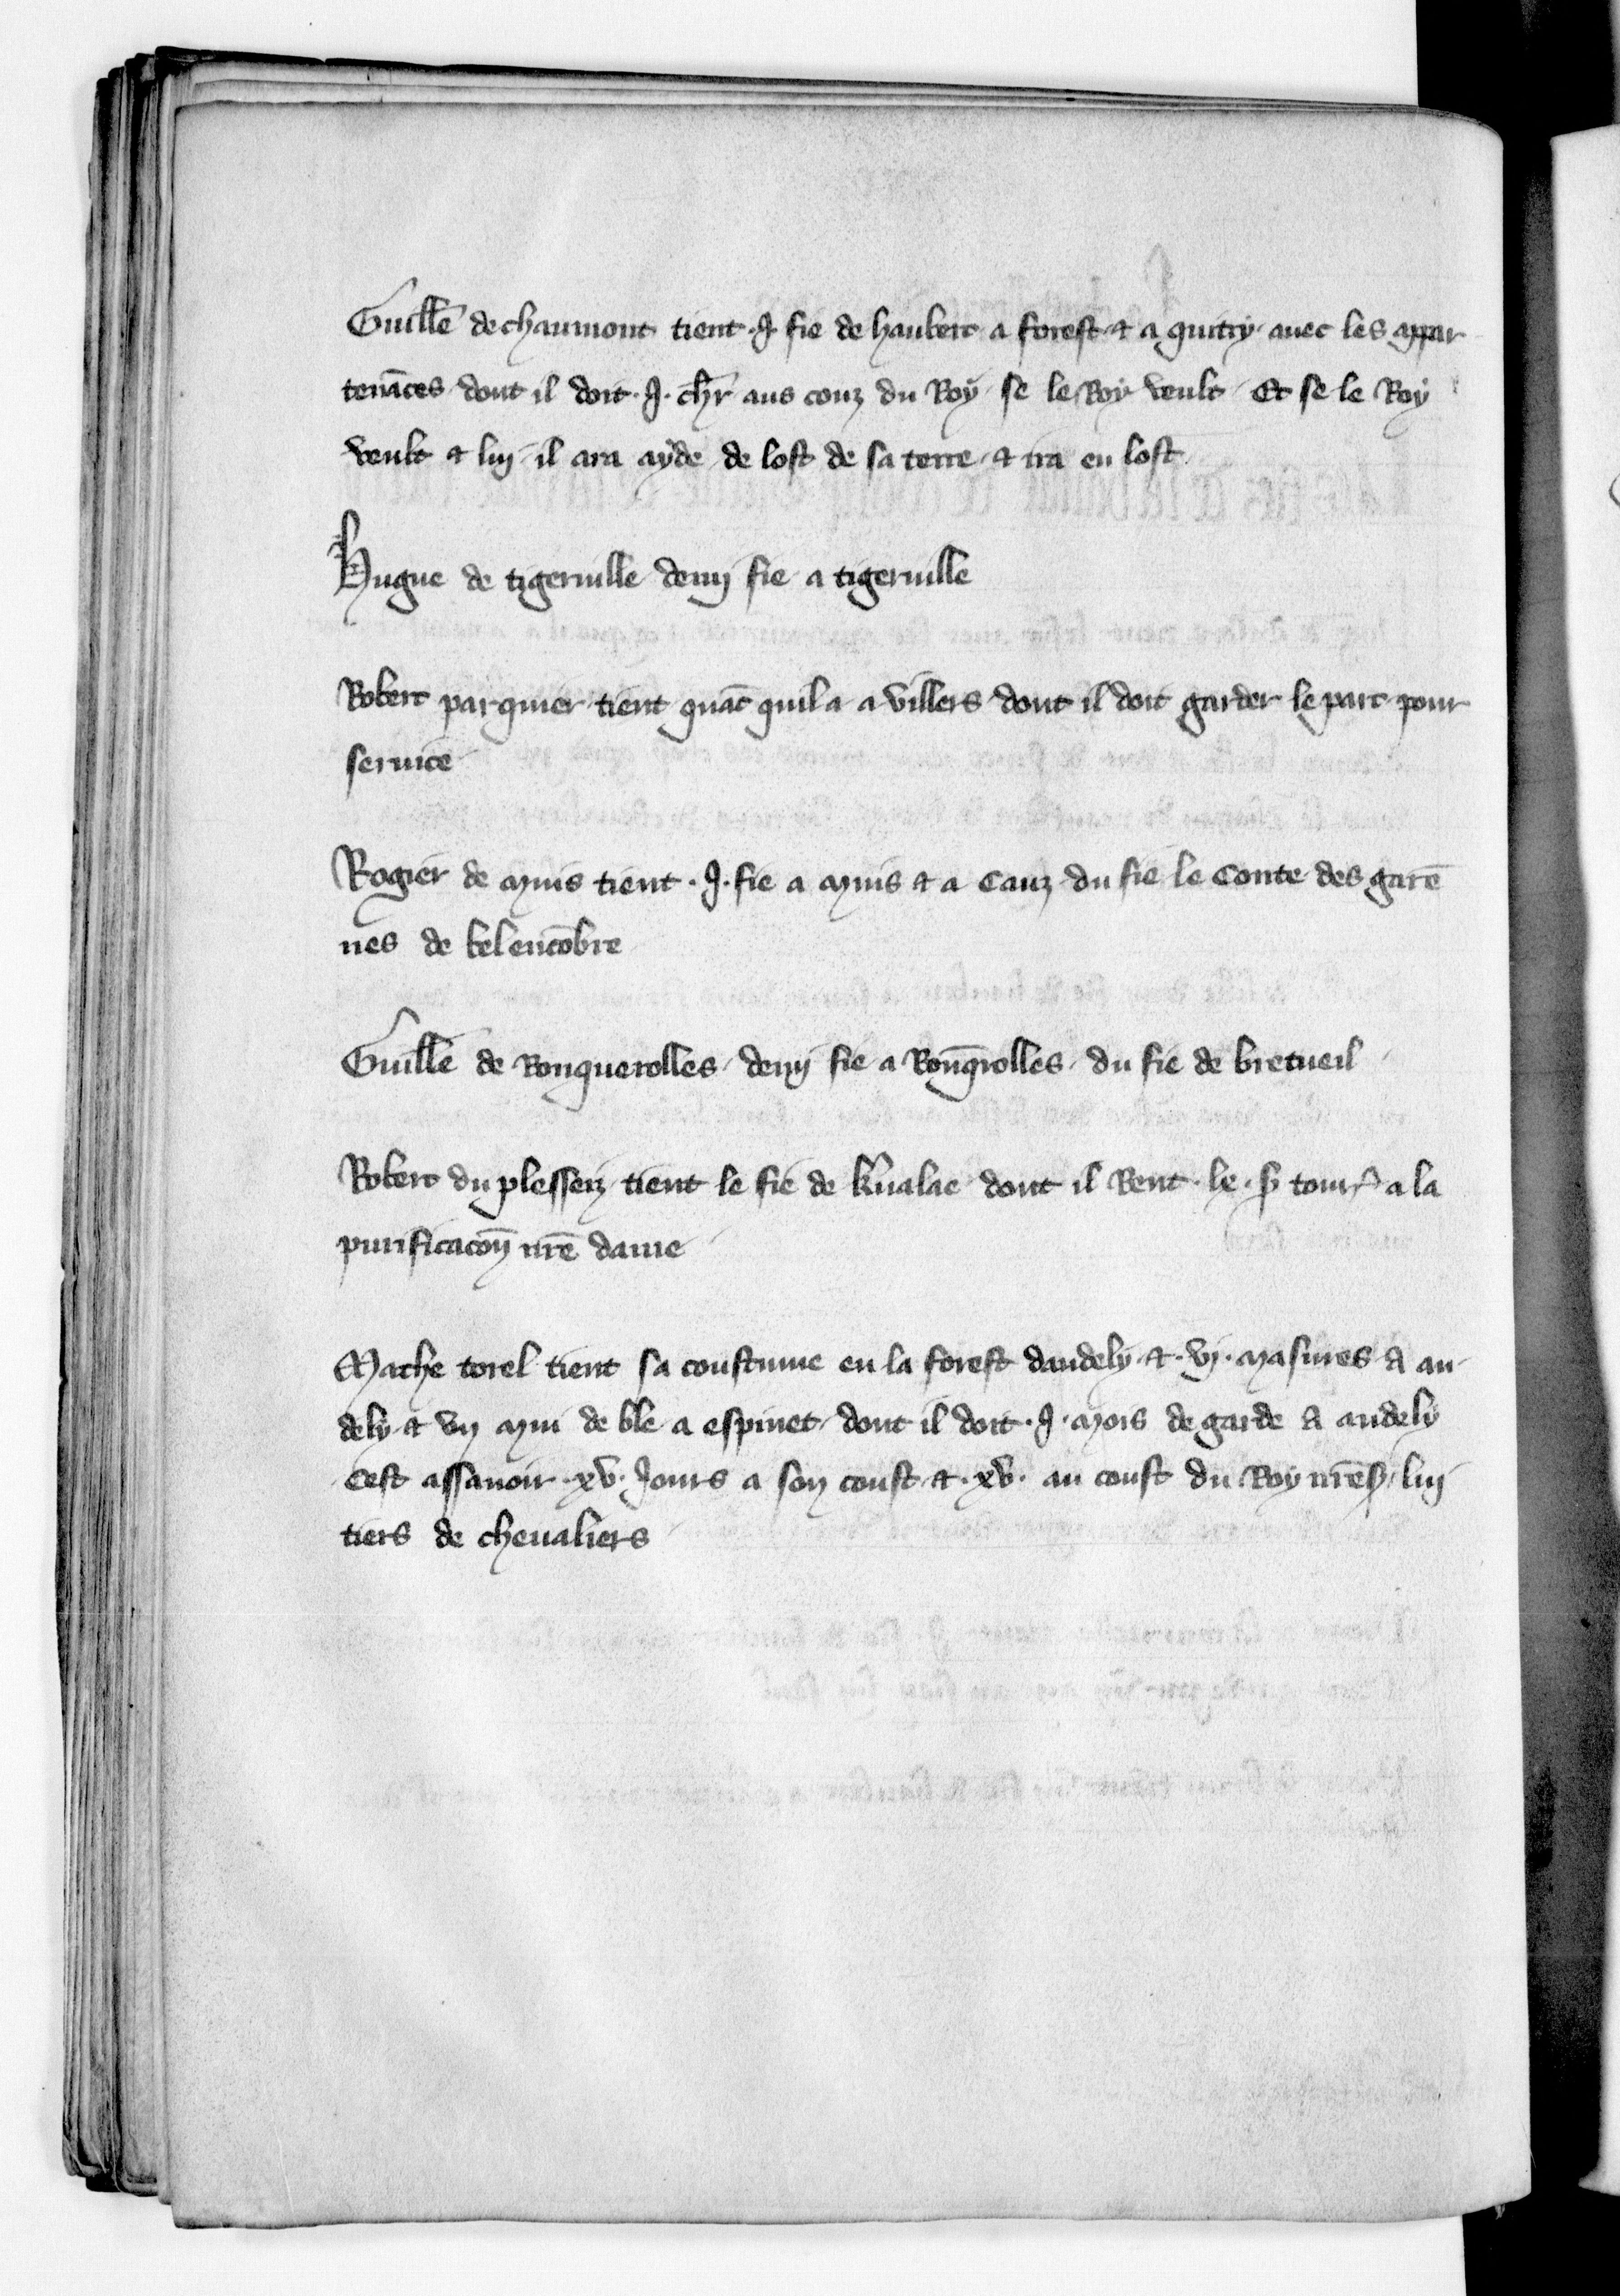 Guillē de chaumont tient .I. fie de haubert a forest & a guitry auec les appar
tenāces dont il doit .I. chr̄ aus couz du Roy se le Roy veult Et se le Roy
veult & luy il ara ayde de lost de sa terre & ira en lost
Hugue de tigeruille demy fie a tigeruille
Robert parquier tient quāt quil a a villers dont il doit garder le parc pour
seruice
Rogier de muis tient .I. fie a muis & a Cauz du fie le Conte des garē
nes de belencōbre
Guillē de Ronquerolles demy fie a Ronq̄rolles du fie de bretueil
Robert du plesseiz tient le fie de dont il Rent tour̄ a la
purificacōn nrē dame
Mathe torel tient sa coustume en la forest dandely & .vj. masures a an
dely & vn mui de ble a espinet dont il doit .I. mois de garde a andely
Cest assauoir .xv. Jours a son coust & .xv. au coust du Roy nrē s luy
tiers de cheualiers